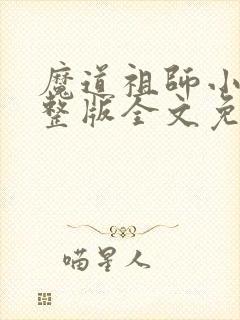 魔道祖師小
整版全文免
喵星人